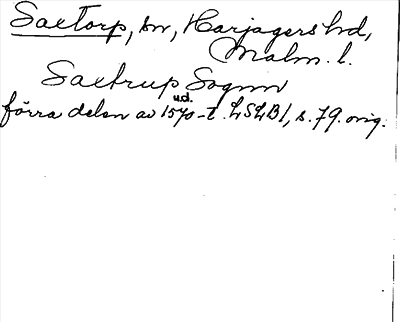 Saxtorp, sn, Harjagers hd,
Malm. l.
Saxtrup Sognn
u.d.
förra delen av 1570-t. LSLB1, s. 79. orig.